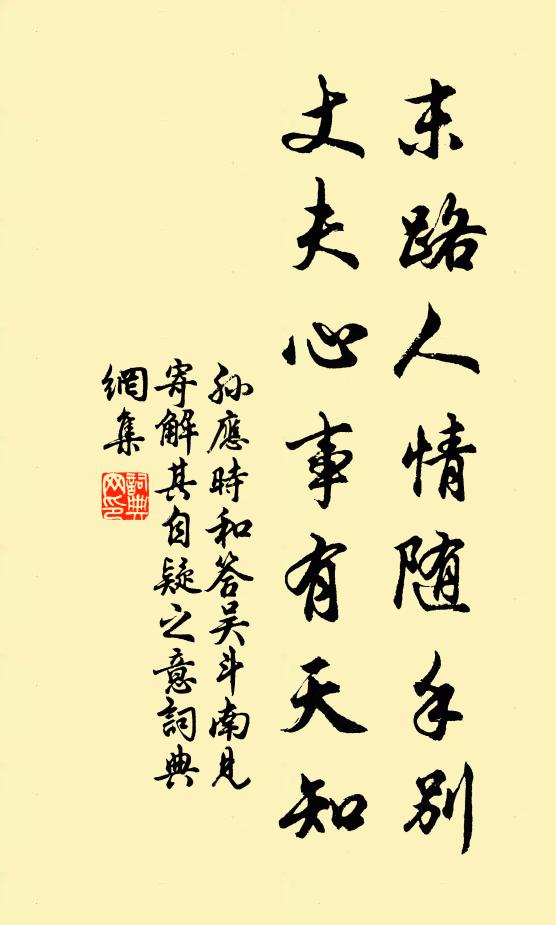 末路人情随手别
丈夫心事有天知
孙應時和答吴斗南見
寄解其自疑之意詞典
網集
詞典
网印